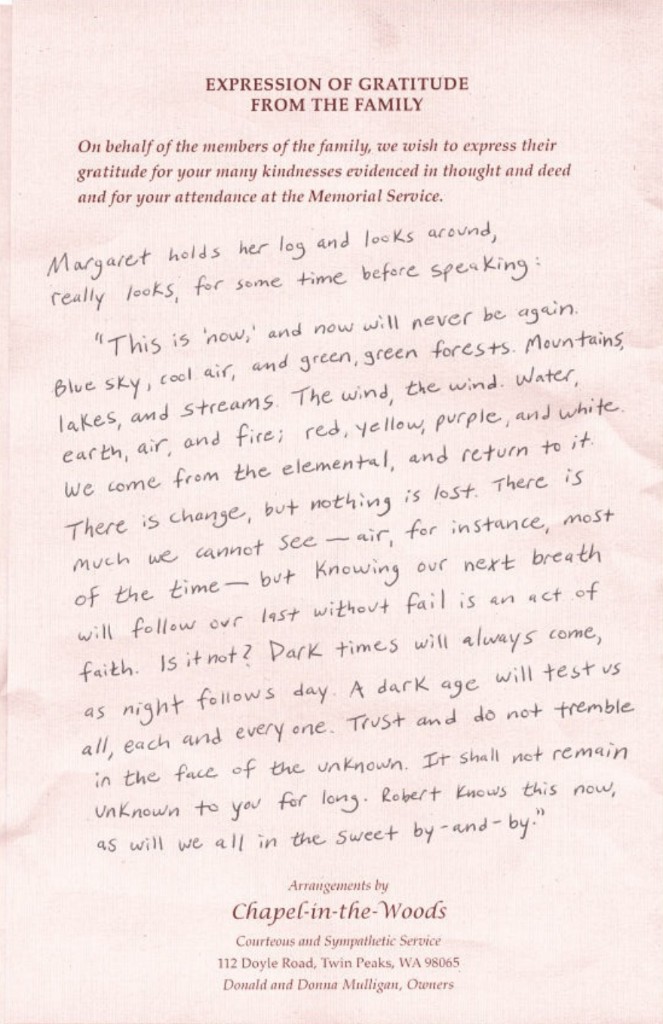 EXPRESSION OF GRATITUDE
FROM THE FAMILY
On behalf of the members of the family, we wish to express their
gratitude for your many kindnesses evidenced in thought and deed
and for your attendance at the Memorial Service.
Margaret holds her log and looks around,
really looks, for some time before speaking:
"This is 'now,' and now will never be again.
Blue sky, cool air, and green, green forests. Mountains,
lakes, and streams. The wind, the wind. Water,
earth, air, and fire; red, yellow, purple, and white.
We come from the elemental, and return to it.
There is change, but nothing is lost. There is
much we cannot see — air, for instance, most
of the time — but knowing our next breath
will follow our last without fail is an act of
faith. Is it not? Dark times will always come,
as night follows day. A dark age will test us
all, each and every one. Trust and do not tremble
in the face of the unknown. It shall not remain
unknown to you for long. Robert knows this now,
as will we all in the sweet by-and-by."
Arrangements by
Chapel-in-the-Woods
Courteous and Sympathetic Service
112 Doyle Road, Twin Peaks, WA 98065
Donald and Donna Mulligan, Owners